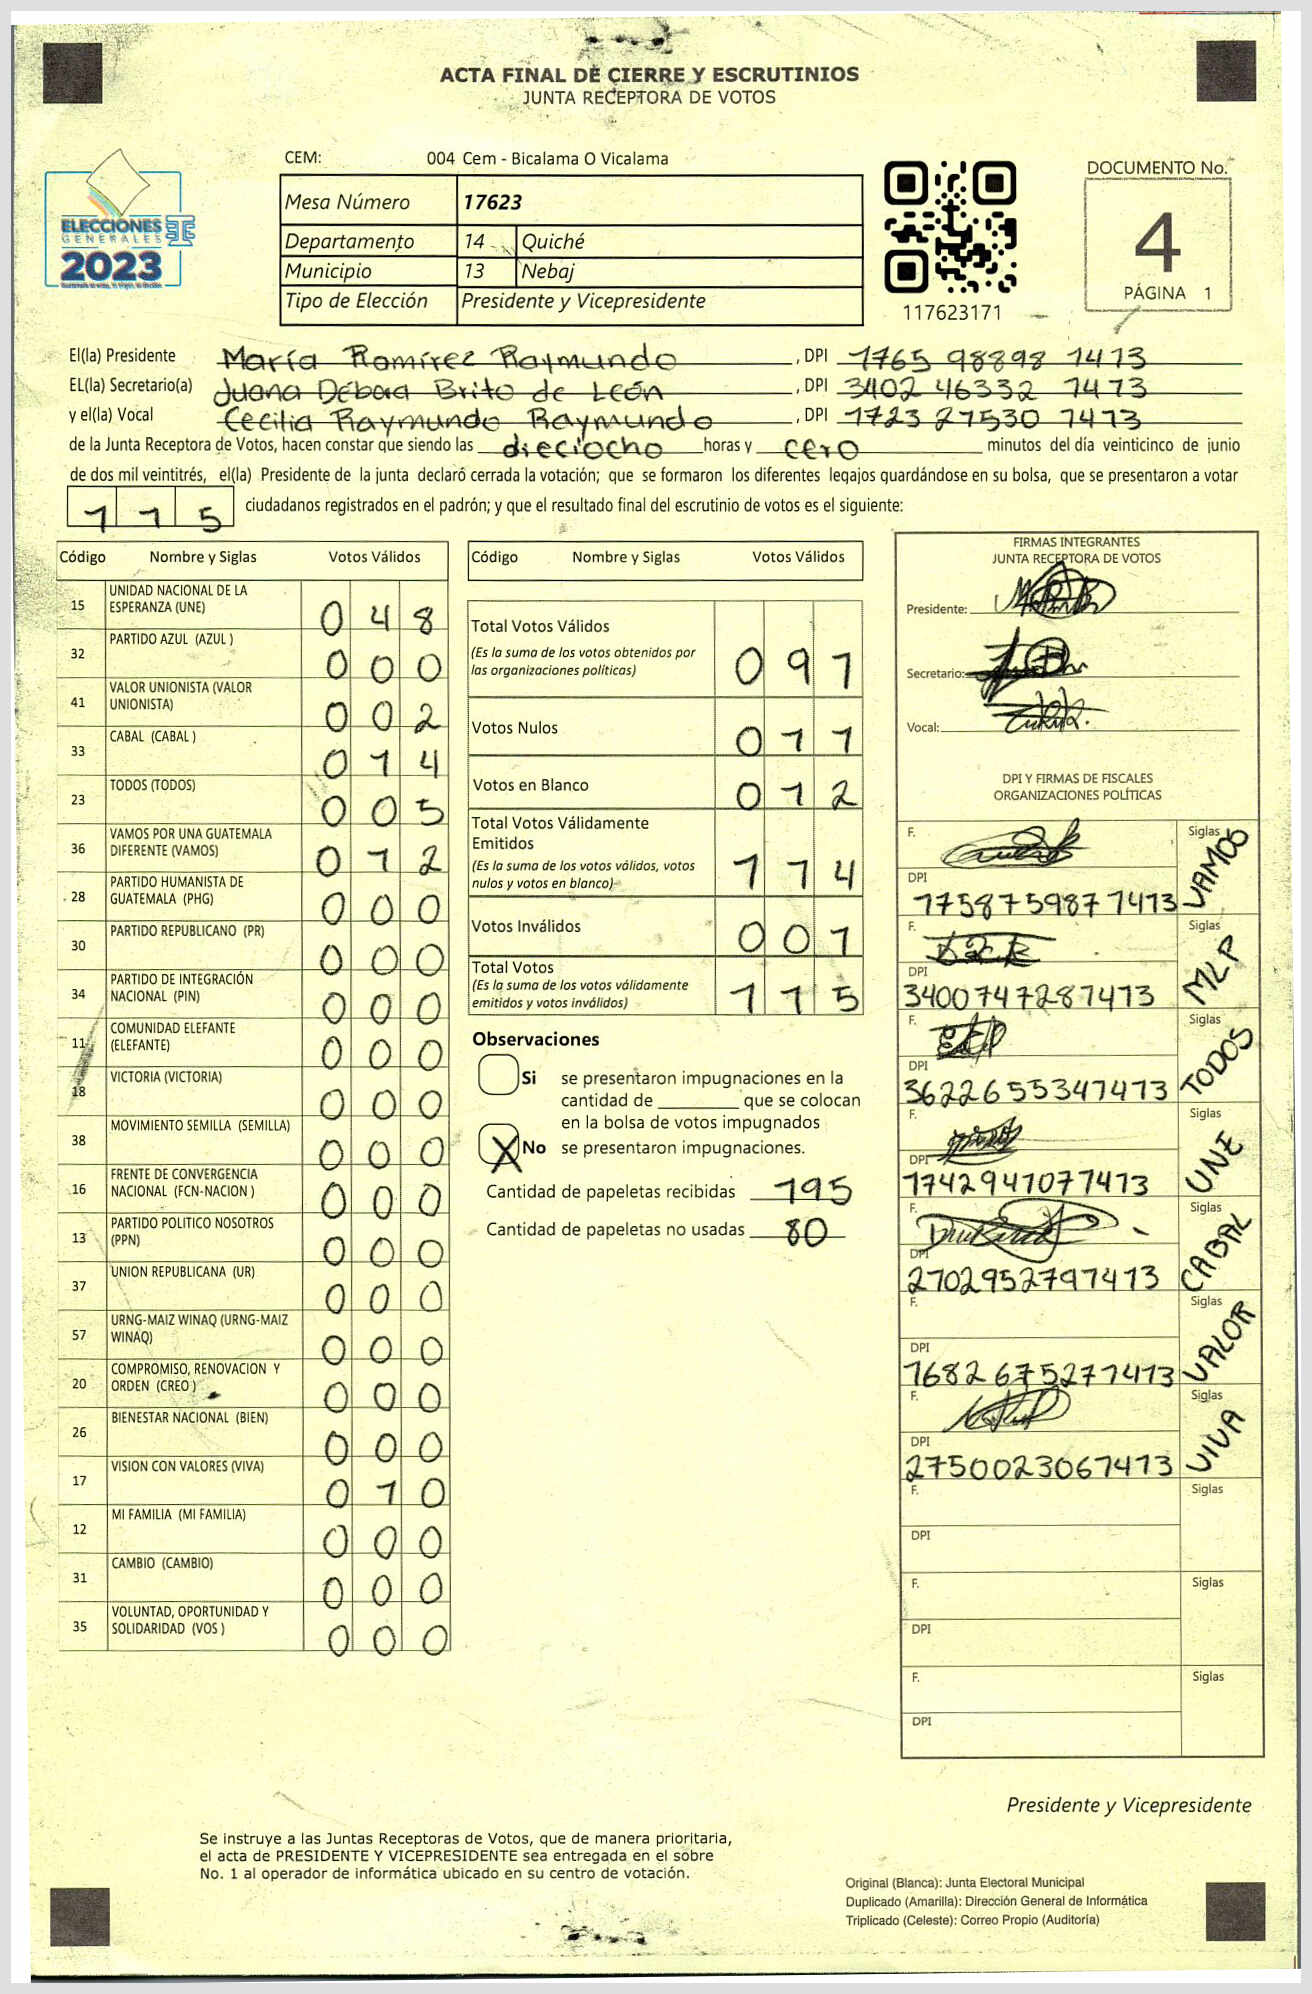 ACTA FINAL DE CIERRE Y ESCRUTINIOS
JUNTA RECEPTORA DE VOTOS
ELECCIONES
GENERALES
2023
CEM: 004 Cem - Bicalama O Vicalama
Mesa Número 17623
Departamento 14 Quiché
Municipio 13 Nebaj
Tipo de Elección Presidente y Vicepresidente
117623171
DOCUMENTO No.
4
PÁGINA 1
El(la) Presidente María Ramírez Raymundo , DPI 1765 98898 1413
EL(la) Secretario(a) Juana Débora Brito de León , DPI 3402 46332 1413
y el(la) Vocal Cecilia Raymundo Raymundo , DPI 1723 27530 1413
de la Junta Receptora de Votos, hacen constar que siendo las dieciocho horas y cero minutos del día veinticinco de junio
de dos mil veintitrés, el(la) Presidente de la junta declaró cerrada la votación; que se formaron los diferentes legajos guardándose en su bolsa, que se presentaron a votar
115 ciudadanos registrados en el padrón; y que el resultado final del escrutinio de votos es el siguiente:
Código Nombre y Siglas Votos Válidos
15 UNIDAD NACIONAL DE LA
ESPERANZA (UNE) 048
32 PARTIDO AZUL (AZUL ) 000
41 VALOR UNIONISTA (VALOR
UNIONISTA) 002
33 CABAL (CABAL ) 014
23 TODOS (TODOS) 005
36 VAMOS POR UNA GUATEMALA
DIFERENTE (VAMOS) 012
28 PARTIDO HUMANISTA DE
GUATEMALA (PHG) 000
30 PARTIDO REPUBLICANO (PR) 000
34 PARTIDO DE INTEGRACIÓN
NACIONAL (PIN) 000
11 COMUNIDAD ELEFANTE
(ELEFANTE) 000
18 VICTORIA (VICTORIA) 000
38 MOVIMIENTO SEMILLA (SEMILLA) 000
16 FRENTE DE CONVERGENCIA
NACIONAL (FCN-NACION ) 000
13 PARTIDO POLITICO NOSOTROS
(PPN) 000
37 UNION REPUBLICANA (UR) 000
57 URNG-MAIZ WINAQ (URNG-MAIZ
WINAQ) 000
20 COMPROMISO, RENOVACION Y
ORDEN (CREO ) 000
26 BIENESTAR NACIONAL (BIEN) 000
17 VISION CON VALORES (VIVA) 010
12 MI FAMILIA (MI FAMILIA) 000
31 CAMBIO (CAMBIO) 000
35 VOLUNTAD, OPORTUNIDAD Y
SOLIDARIDAD (VOS ) 000
Código Nombre y Siglas Votos Válidos
Total Votos Válidos
(Es la suma de los votos obtenidos por
las organizaciones politicas) 091
Votos Nulos 011
Votos en Blanco 012
Total Votos Válidamente
Emitidos
(Es la suma de los votos válidos, votos
nulos y votos en blanco) 114
Votos Inválidos 001
Total Votos
(Es la suma de los votos válidamente
emitidos y votos inválidos) 115
Observaciones
Si se presentaron impugnaciones en la
cantidad de ________ que se colocan
en la bolsa de votos impugnados
X No se presentaron impugnaciones.
Cantidad de papeletas recibidas 195
Cantidad de papeletas no usadas 80
FIRMAS INTEGRANTES
JUNTA RECEPTORA DE VOTOS
Presidente:
Secretario:
Vocal:
DPI Y FIRMAS DE FISCALES
ORGANIZACIONES POLÍTICAS
F. Siglas VAMOS
DPI
1758759871413
F. Siglas MLP
DPI
3400747281413
F. Siglas TODOS
DPI
3622655341413
F. Siglas UNE
DPI
1742941071413
F. Siglas CABAL
DPI
2702952791413
F. Siglas VALOR
DPI
1682675271413
F. Siglas VIVA
DPI
2750023061413
F. Siglas
DPI
F. Siglas
DPI
F. Siglas
DPI
Presidente y Vicepresidente
Se instruye a las Juntas Receptoras de Votos, que de manera prioritaria,
el acta de PRESIDENTE Y VICEPRESIDENTE sea entregada en el sobre
No. 1 al operador de informática ubicado en su centro de votación.
Original (Blanca): Junta Electoral Municipal
Duplicado (Amarilla): Dirección General de Informática
Triplicado (Celeste): Correo Propio (Auditoría)